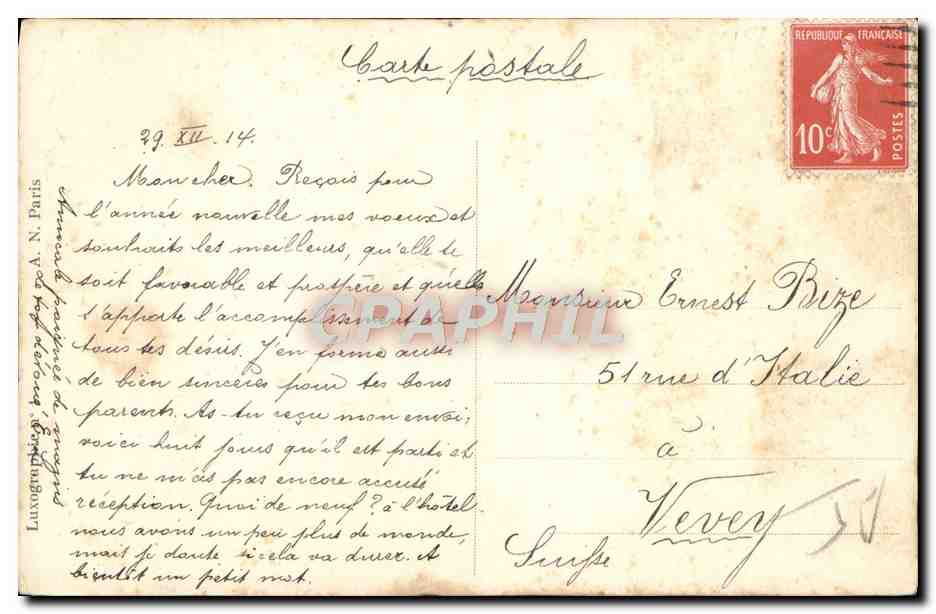 Carte postale
RÉPUBLIQUE FRANÇAISE
10c
POSTES
29. XII. 14.
Mon cher. Reçois pour
l'année nouvelle mes voeux et
souhaits les meilleurs, qu'elle te
soit favorable et prospère et qu'elle
t'apporte l'accomplissement de
tous tes désirs. J'en forme aussi
de bien sincères pour tes bons
parents. As-tu reçu mon envoi,
voici huit jours qu'il est parti et
tu ne m'as pas encore accusé
réception. Quoi de neuf? à l'hôtel
nous avons un peu plus de monde,
mais je doute si cela va durer. A
bientôt un petit mot.
Amicale poignée de mains
de ton dévoué
Monsieur Ernest Bize
51 rue d'Italie
à
Vevey
Suisse
Luxographie A. N. Paris
CPAPHIL